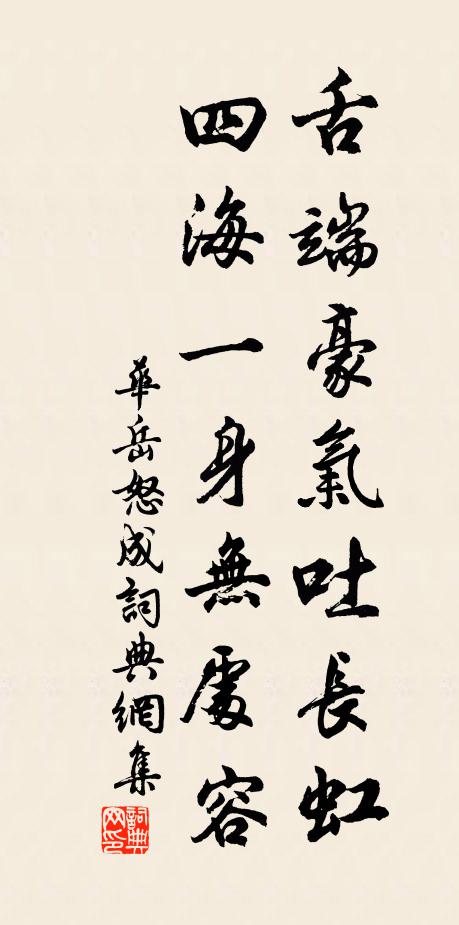 舌端豪氣吐長虹
四海一身無處容
華岳怒成詞典網集
詞典
网印